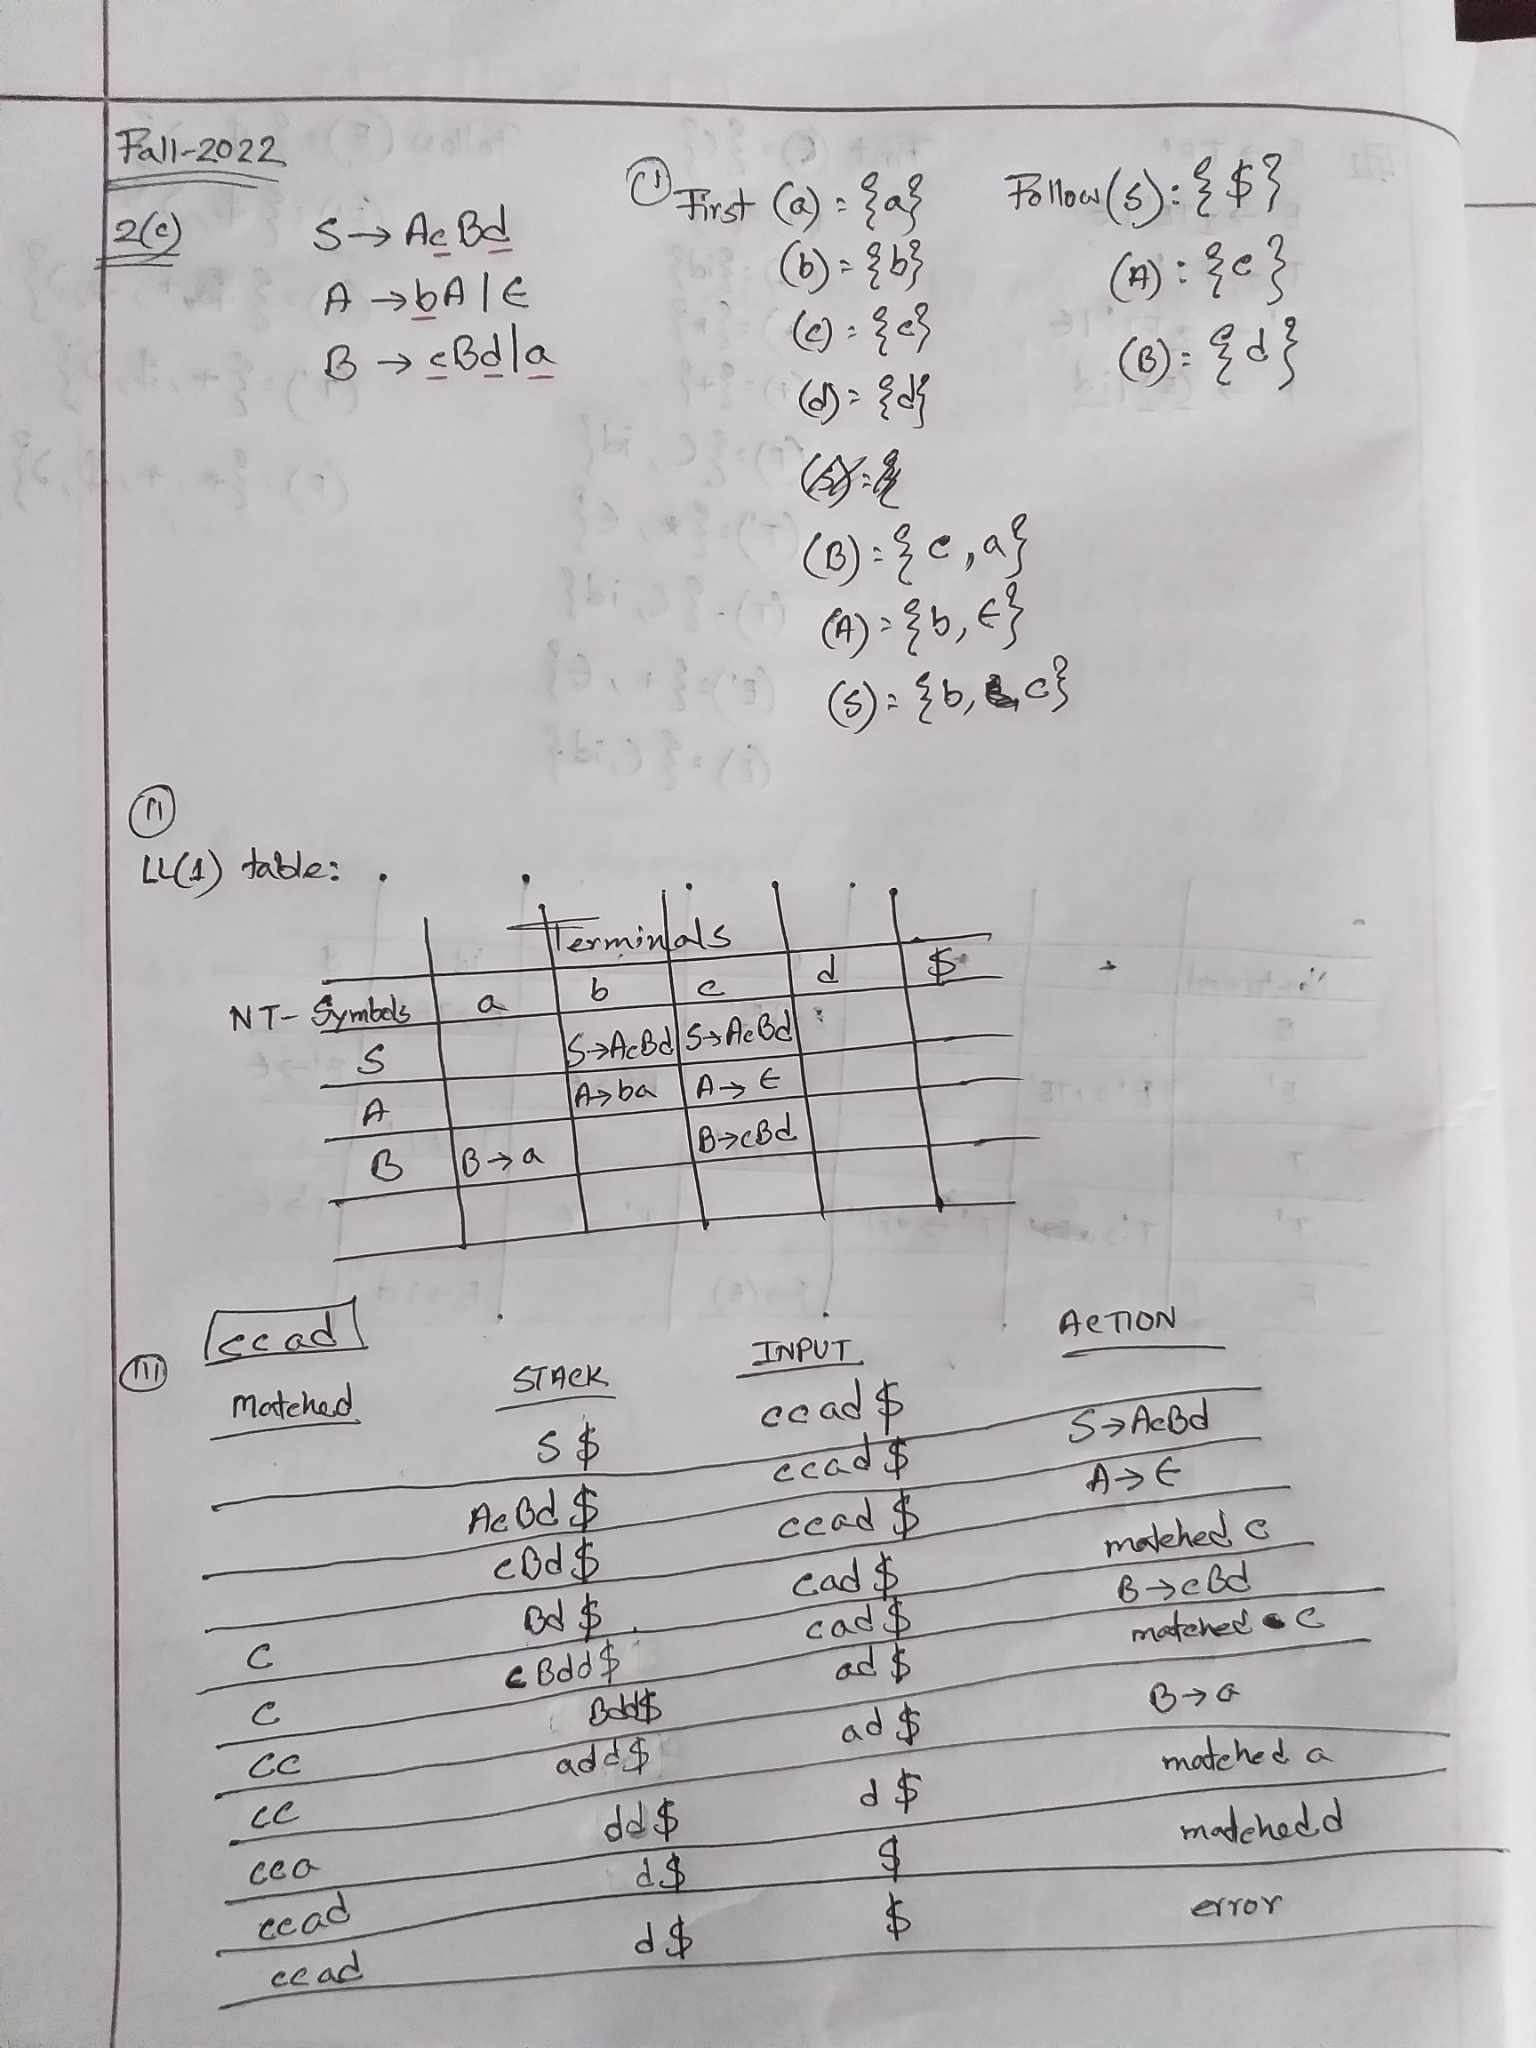 Fall-2022
2(c)
S → AcBd
A → bA | ϵ
B → cBd | a
(i) First (a) = {a}
(b) = {b}
(c) = {c}
(d) = {d}
(B) = {c, a}
(A) = {b, ϵ}
(S) = {b, c}
Follow(S): {$}
(A): {c}
(B): {d}
(ii)
LL(1) table:
Terminals
NT- Symbols a b c d $
S S→AcBd S→AcBd
A A→ba A→ϵ
B B→a B→cBd
(iii) ccad
Matched STACK INPUT ACTION
S$ ccad$ S→AcBd
AcBd$ ccad$ A→ϵ
cBd$ ccad$ matched c
c Bd$ cad$ B→cBd
c cBdd$ cad$ matched c
cc Bdd$ ad$ B→a
cc add$ ad$ matched a
cca dd$ d$ matched d
ccad d$ $ error
ccad d$ $